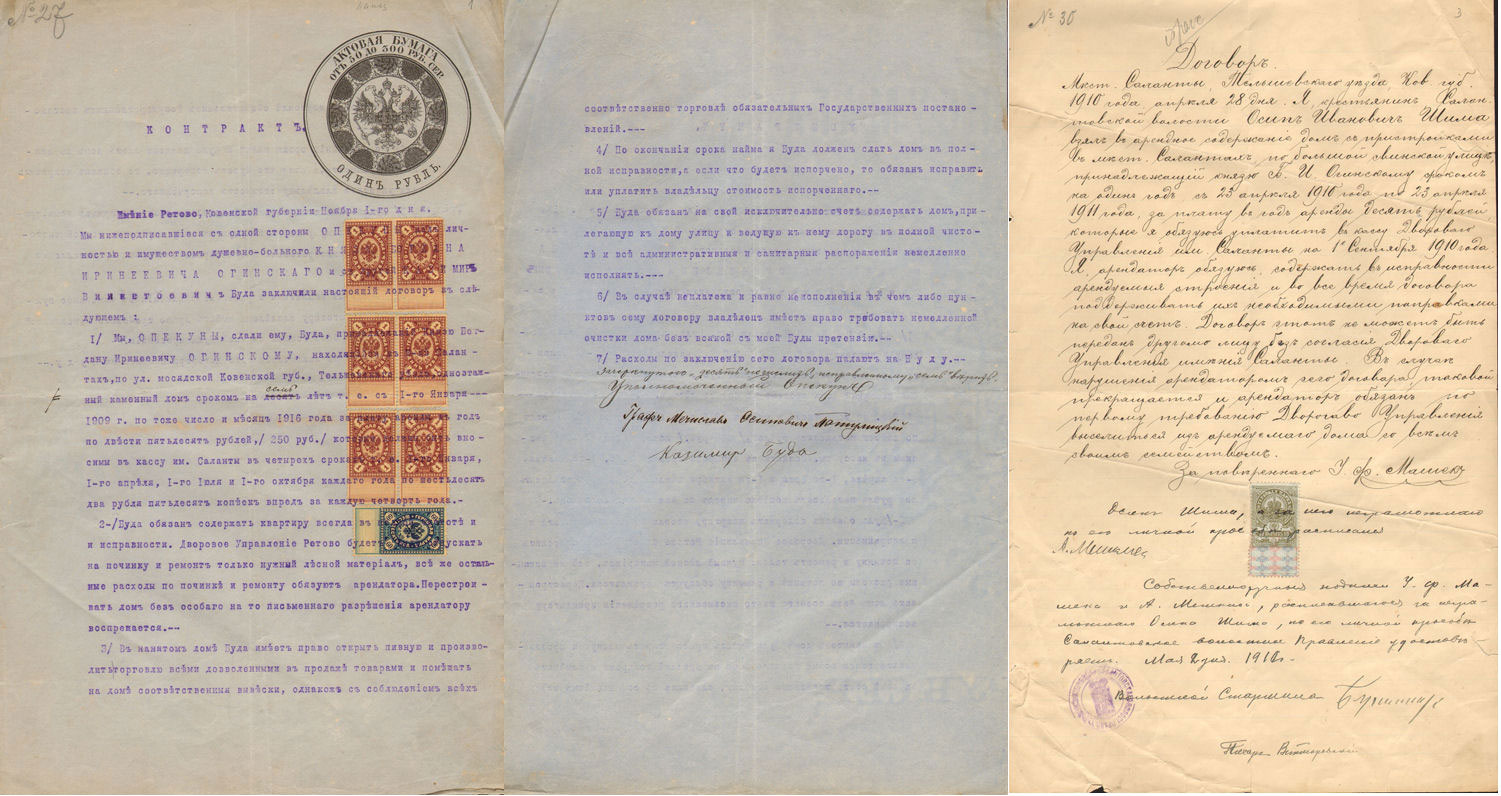 № 27
1
АКТОВАЯ БУМАГА
ОТЪ 50 ДО 300 РУБ. СЕР.
ОДИНЪ РУБЛЬ.
КОНТРАКТЪ.
Имѣніе Ретово, Ковенской губерніи Ноября 1-го дня.
Мы нижеподписавшіеся съ одной стороны лич-
ностью и имуществомъ душевно-больного
ИРИНЕЕВИЧА ОГИНСКАГО и МИРЪ
Була заключили настоящій договоръ въ слѣ-
дующемъ :
1/ Мы, ОПЕКУНЫ, сдали ему, Була, Князю Бог-
дану Иринеевичу ОГИНСКОМУ, Салан-
тахъ, по ул. мосядской Ковенской губ., одноэтаж-
семь
ный каменный домъ срокомъ на десять лѣтъ т. е. съ 1-го Января
1909 г. по тоже число и мѣсяцъ 1916 года въ годъ
по двѣсти пятьдесятъ рублей,/ 250 руб./ вно-
симы въ кассу им. Саланты въ четырехъ срокахъ Января,
1-го апрѣля, 1-го Іюля и 1-го октября каждаго года по шестьдесятъ
два рубля пятьдесятъ копѣекъ впредъ за каждую четверть года.-
2-/Була обязанъ содержать квартиру всегда въ и
и исправности. Дворовое Управленіе Ретово
на починку и ремонтъ только нужный лѣсной матеріалъ, всѣ же осталь-
ные расходы по починкѣ и ремонту обязуютъ арендатора.Перестрои -
вать домъ безъ особаго на то письменнаго разрѣшенія арендатору
воспрещается.--
3/ Въ нанятомъ домѣ Була имѣетъ право открыть пивную и произво-
дить торговлю всѣми дозволенными въ продажѣ товарами и помѣщать
на домѣ соотвѣтственныя вывѣски, однакожъ съ соблюденіемъ всѣхъ
соотвѣтственно торговлѣ обязательныхъ Государственныхъ постано -
вленій.---
4/ По окончаніи срока найма я Була долженъ сдать домъ въ пол-
ной исправности,а если что будетъ испорчено, то обязанъ исправить
или уплатить владѣльцу стоимость испорченнаго.--
5/ Була обязанъ на свой исключительно счетъ содержать домъ,при-
легающую къ дому улицу и ведущую къ нему дорогу въ полной чисто-
тѣ и всѣ административныя и санитарныя распоряженія немедленно
исполнять.---
6/ Въ случаѣ неплатежа и равно неисполненія въ чемъ либо пун-
ктовъ сему договору владѣлецъ имѣетъ право требовать немедленной
очистки дома безъ всякой съ моей Булы претензіи.--
7/ Расходы по заключенію сего договора падаютъ на Булу.--
Уполномоченный Опекунъ
Графъ Мечиславъ Осиповичъ
Казимир Буда
№ 30
3
Договоръ.
Мкст. Саланты, Тельшевскаго уѣзда, Ков. губ.
1910 года апрѣля 28 дня. Я, крестьянинъ Салан-
товской волости Осипъ Ивановичъ Шима
взялъ въ арендное содержаніе домъ съ пристройками
въ мкст. Салантахъ, по большой улицѣ,
принадлежащей князю Б. И. Огинскому срокомъ
на одинъ годъ съ 23 апрѣля 1910 года по 23 апрѣля
1911 года, за плату въ годъ аренды десять рублей,
которые я обязуюсь уплатить въ кассу Двороваго
Управленія им. Саланты на 1е Сентября 1910 года
Я, арендаторъ обязуюсь содержать въ исправности
арендуемыя строенія и во все время договора
поддерживать ихъ необходимыми поправками
на свой счетъ. Договоръ этотъ не можетъ быть
переданъ другому лицу безъ согласія Двороваго
Управленія имѣнія Саланты. Въ случаѣ
нарушенія арендаторомъ сего договора, таковой
прекращается и арендаторъ обязанъ по
первому требованію Двороваго Управленія
выселиться изъ арендуемаго дома со всѣмъ
своимъ семействомъ.
За повереннаго
Шима, а за него неграмотнаго
по его личной
Собственноручныя подписи
неграмотнаго Осипа Шима, по его личной просьбѣ
Салантовское волостное Правленіе удостовѣ-
ряетъ. Мая 1910 г.
Волостной Старшина
Писарь